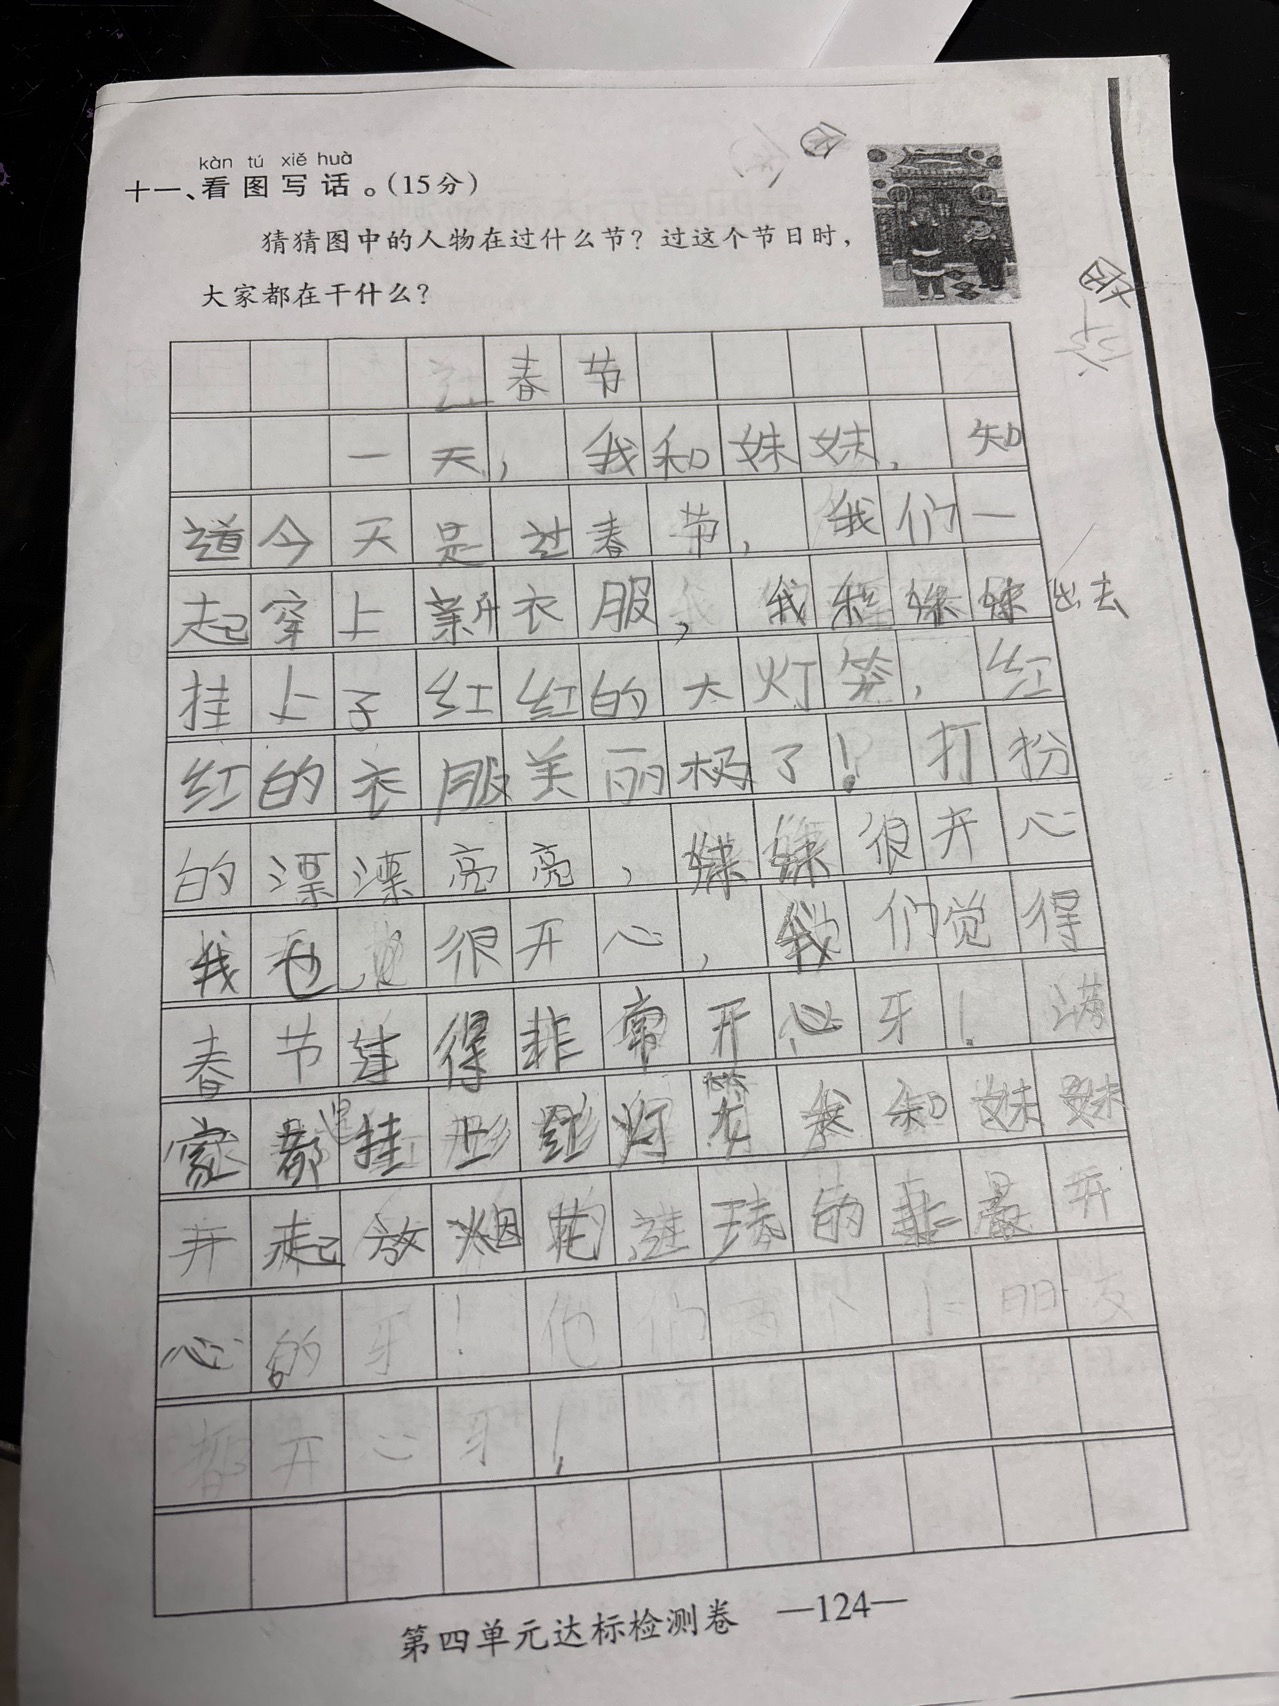 kàn tú xiě huà
十一、看图写话。(15分)
猜猜图中的人物在过什么节？过这个节日时，
大家都在干什么？
过春节
一天，我和妹妹，知
道今天是过春节，我们一
起穿上新衣服，我和妹妹出去
挂上了红红的大灯笼，红
红的衣服美丽极了！打扮
的漂漂亮亮，妹妹很开心
我也很开心，我们觉得
春节过得非常开心牙！
家都挂灯我和妹妹
开起放烟花的最开
心的牙！他们
开心牙！
第四单元达标检测卷 —124—